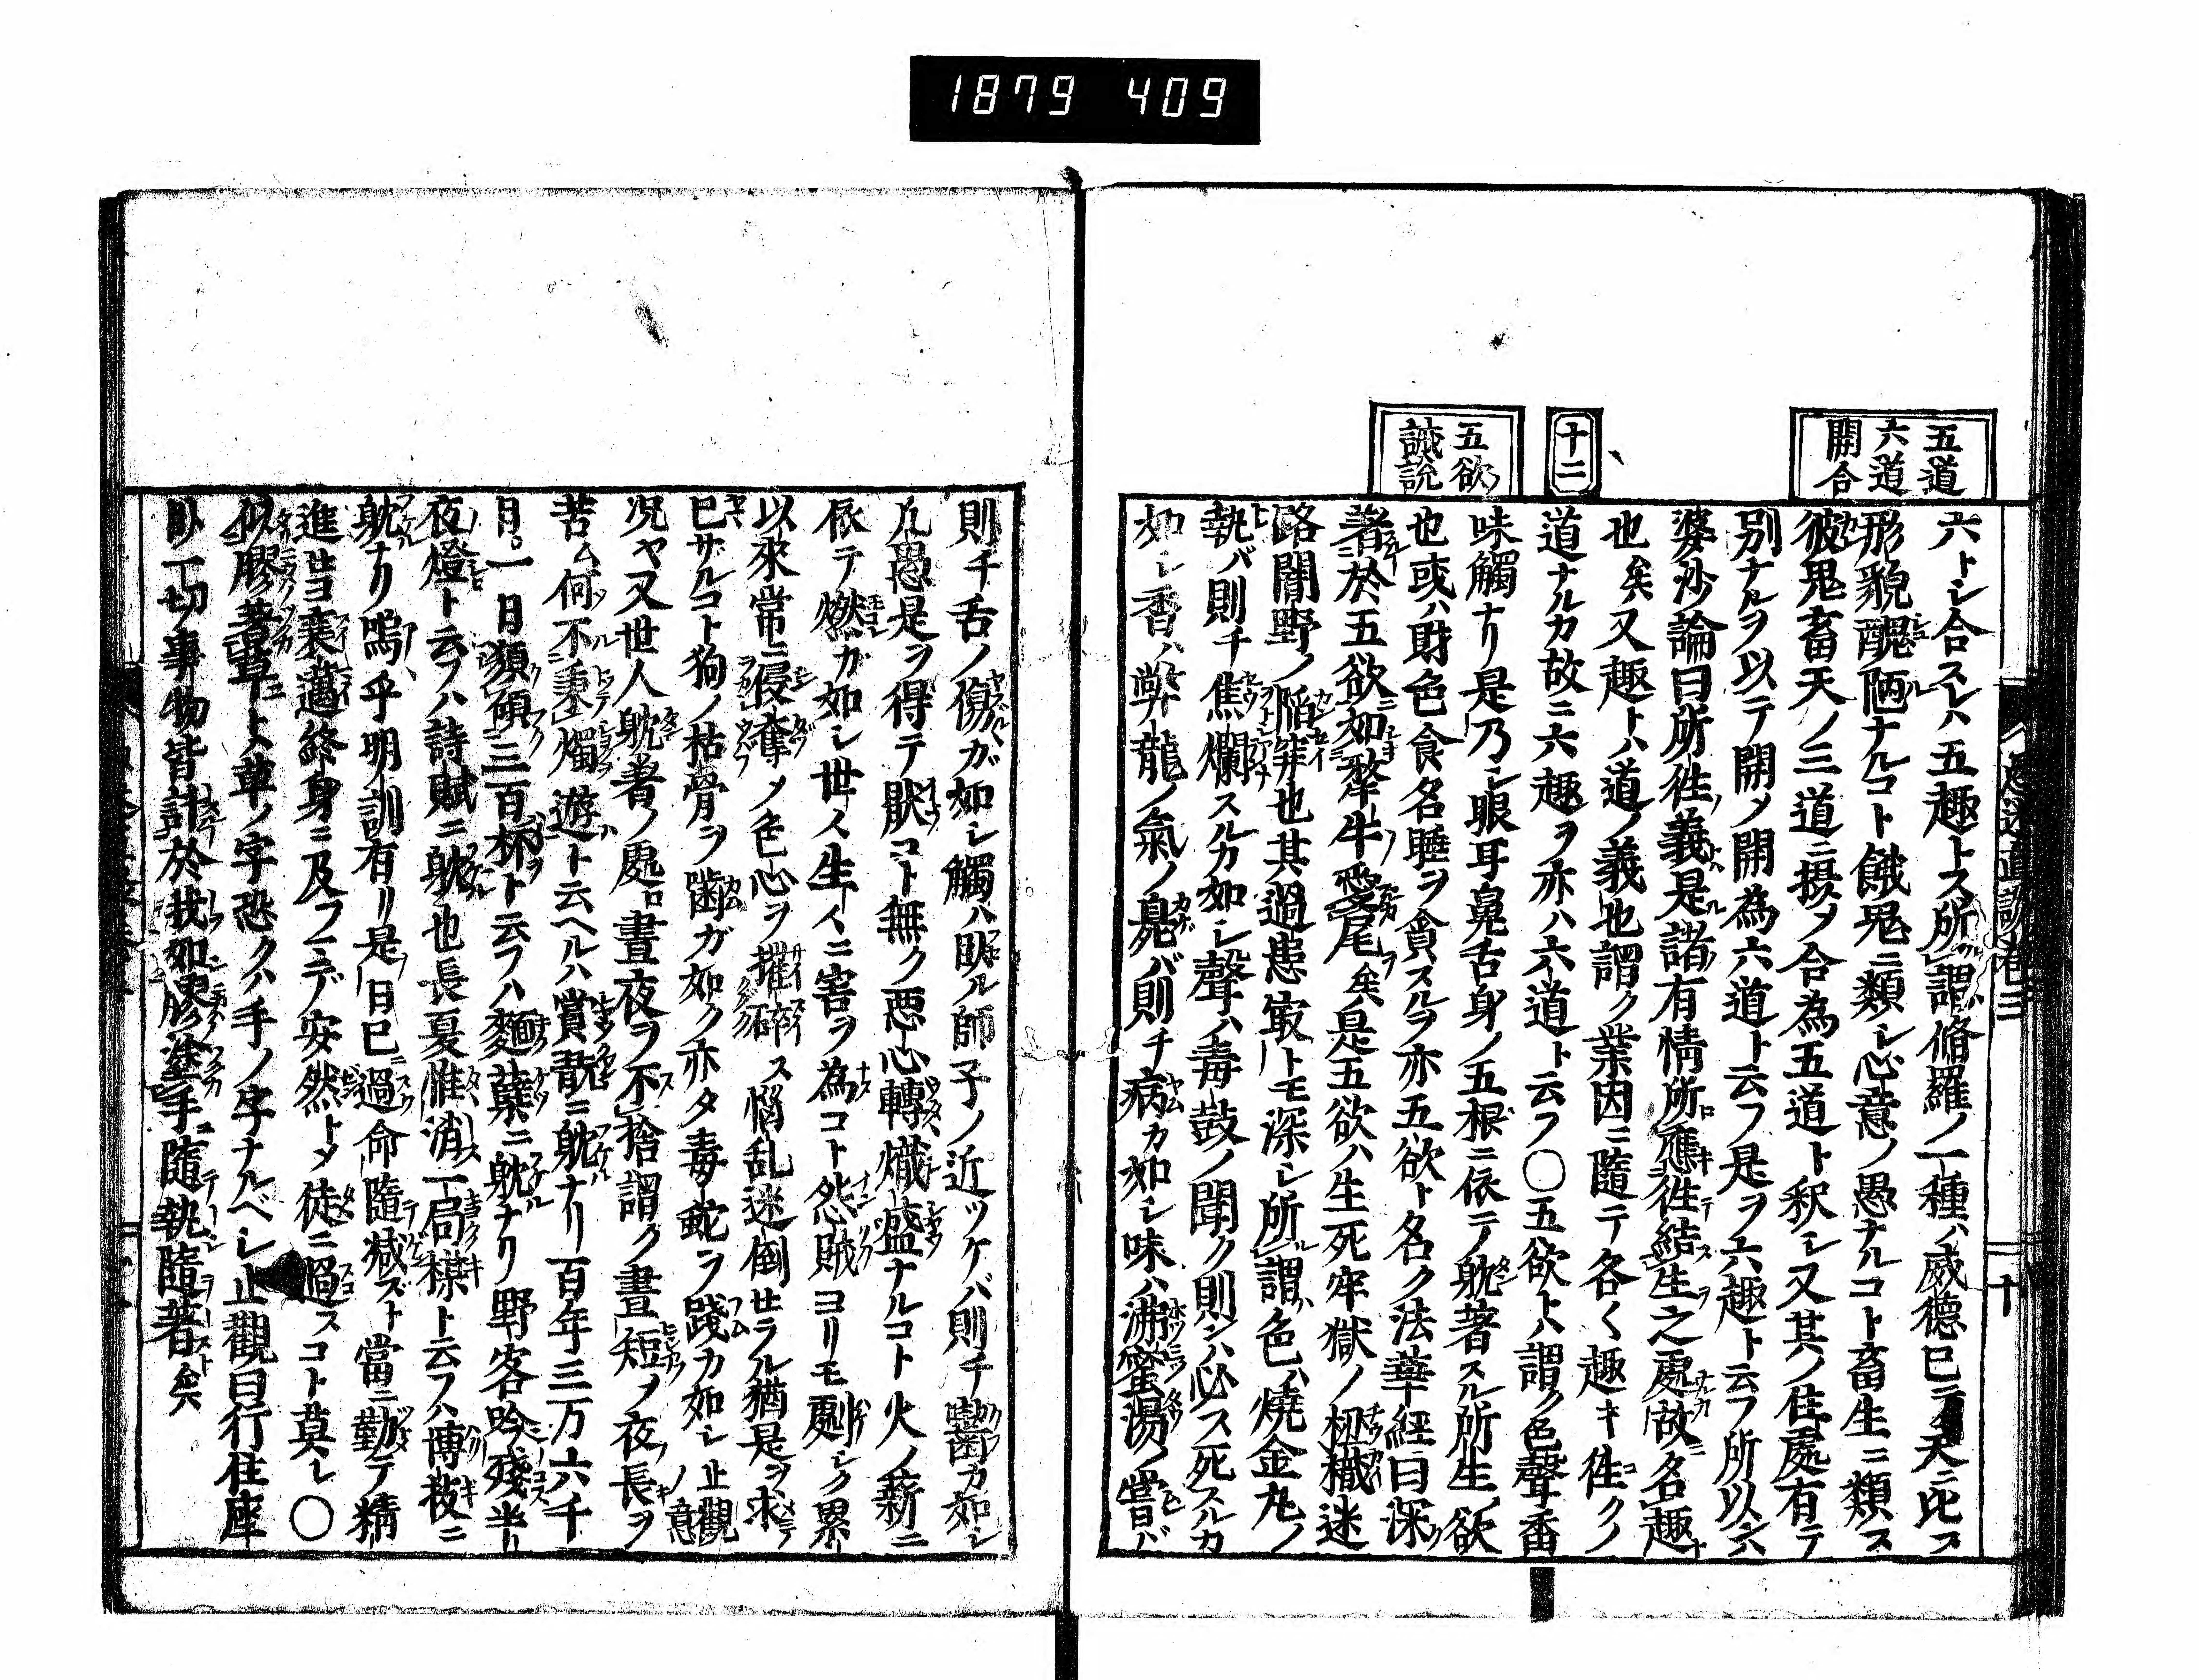 1879 409
五道
六道
開合
十二
五欲
誡説
六トシ合スレハ五趣トス所謂脩羅ノ一種ハ威德已ニ天ニ比ス
形貌醜陋ナルコト餓鬼ニ類シ心意ノ愚ナルコト畜生ニ類ス
彼鬼畜天ノ三道ニ摂メ合為五道ト釈シ又其ノ住處有テ
別ナルヲ以テ開メ開為六道ト云フ是ヲ六趣ト云フ所以六
婆沙論曰所徃義是諸有情所應徃結生之處故名趣
也矣又趣トハ道ノ義也謂ク業因ニ隨テ各く趣キ徃クノ
道ナルカ故ニ六趣ヲ亦ハ六道ト云フ〇五欲トハ謂ク色聲香
味觸ナリ是乃シ眼耳鼻舌身ノ五根ニ依テ躭著スル所生ノ欲
也或ハ財色食名睡ヲ貪スルヲ亦五欲ト名ク法華經曰深
著於五欲如犛牛愛尾矣是五欲ハ生死牢獄ノ杻械迷
路闇野ノ陥穽也其過患㝡トモ深シ所謂色ハ燒金丸ノ
執バ則チ焦爛スルカ如シ聲ハ毒鼓ノ聞ク則ンハ必ス死スルカ
如シ香ハ弊龍ノ氣ノ鳧バ則チ病カ如シ味ハ沸蜜湯ノ甞バ
則チ舌ノ傷ガ如シ觸ハ臥ル師子ノ近ツケバ則チ齧カ如シ
凢愚是ヲ得テ猒コト無ク悪心轉熾盛ナルコト火ノ薪ニ
依テ燃ガ如シ世人生人ニ害ヲ為コト怨賊ヨリモ劇シク累
以來常ニ侵奪メ色心ヲ摧碎ス惱乱迷倒セラル猶是ヲ求
已サルコト狗ノ枯骨ヲ齒ガ如ク亦タ毒蛇ヲ踐カ如シ止觀ノ意
况ヤ又世人躭著ノ處ロ晝夜ヲ不捨謂ク晝短ノ夜長ヲ
苦ム何不秉燭遊ト云ヘルハ賞翫ニ躭ナリ百年三万六千
日一日須傾三百杯ト云フハ麵蘖ニ躭ナリ野客吟殘半
夜燈ト云フハ詩賦ニ躭ル也長夏惟消一局棋ト云フハ博技ニ
躭ナリ嗚乎明訓有リ是日已過命隨減ズト當ニ勤テ精
進セヨ衰邁終身ニ及フマデ安然トメ徒ニ過スコト莫レ〇
似膠著草ニトハ草ノ字恐クハ手ノ字ナルベシ止觀曰行住座
卧一切事物皆計於我如膠塗手隨執隨著矣
十